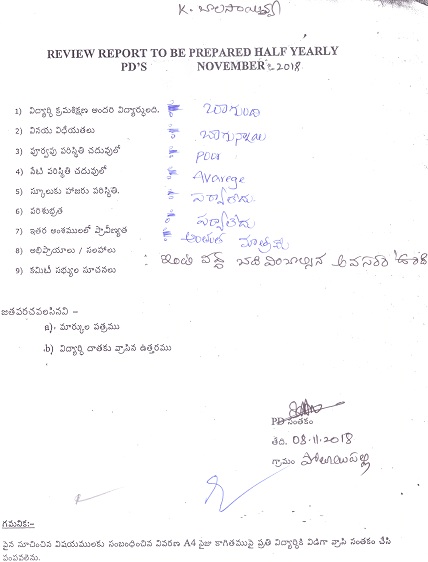 K. బాలసాయిశ్రీ
REVIEW REPORT TO BE PREPARED HALF YEARLY
PD'S NOVEMBER 2018
1) విద్యార్థి క్రమశిక్షణ అందరి విద్యార్థులది. : బాగుంది
2) వినయ విధేయతలు : బాగున్నాయి
3) పూర్వపు పరిస్థితి చదువులో : Poor
4) నేటి పరిస్థితి చదువులో : Avarege
5) స్కూలుకు హాజరు పరిస్థితి. : పర్వాలేదు
6) పరిశుభ్రత : పర్వాలేదు
7) ఇతర అంశములలో ప్రావీణ్యత : అంతంత మాత్రమే
8) అభిప్రాయాలు / సలహాలు
9) కమిటీ సభ్యుల సూచనలు : ఇంటి వద్ద అవసరం
జతపరచవలసినవి –
a)- మార్కుల పత్రము
b) విద్యార్థి దాతకు వ్రాసిన ఉత్తరము
PD సంతకం
తేది. 08.11.2018
గ్రామం
గమనిక:–
పైన సూచించిన విషయములకు సంబంధించిన వివరణ A4 సైజు కాగితముపై ప్రతి విద్యార్థికి విడిగా వ్రాసి సంతకం చేసి
పంపవలెను.